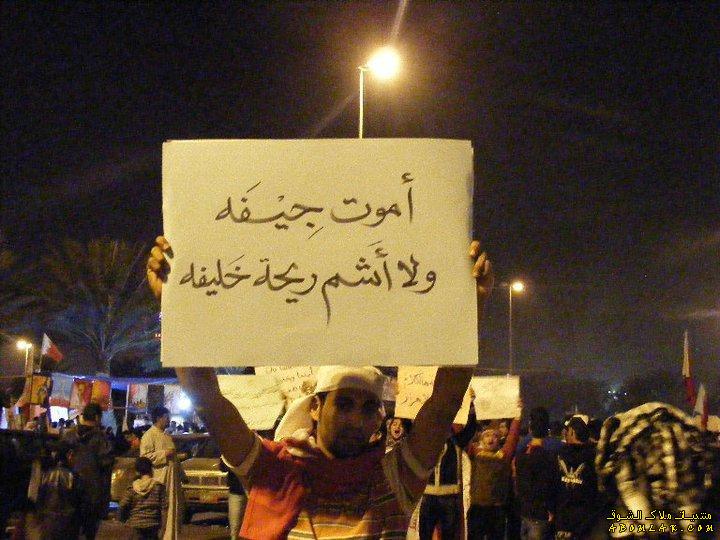 أموت جِيْفَه
ولا أَشم ريحة خَليفه
منتديات ملاك الشوق
ADOMLAK.COM